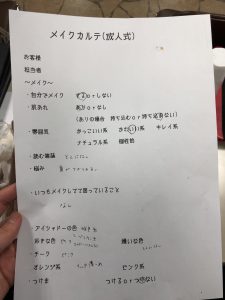 メイクカルテ(成人式)
お客様
担当者
〜メイク〜
・自分でメイク する or しない
・肌あれ あり or なし
(ありの場合 持ち込む or 持ち込まない)
・雰囲気 かっこいい系 かわいい系 キレイ系
ナチュラル系 個性的
・読む雑誌 とくになし
・悩み
・いつもメイクしてて困っていること
なし
・アイシャドーの色
好きな色 嫌いな色
・チーク
オレンジ系 ピンク系
・つけま つける or つけない